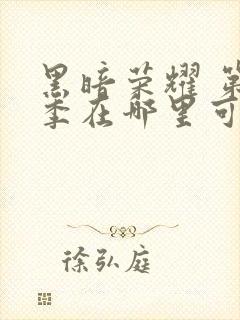 黑暗荣耀 第
季在哪里可
徐弘庭